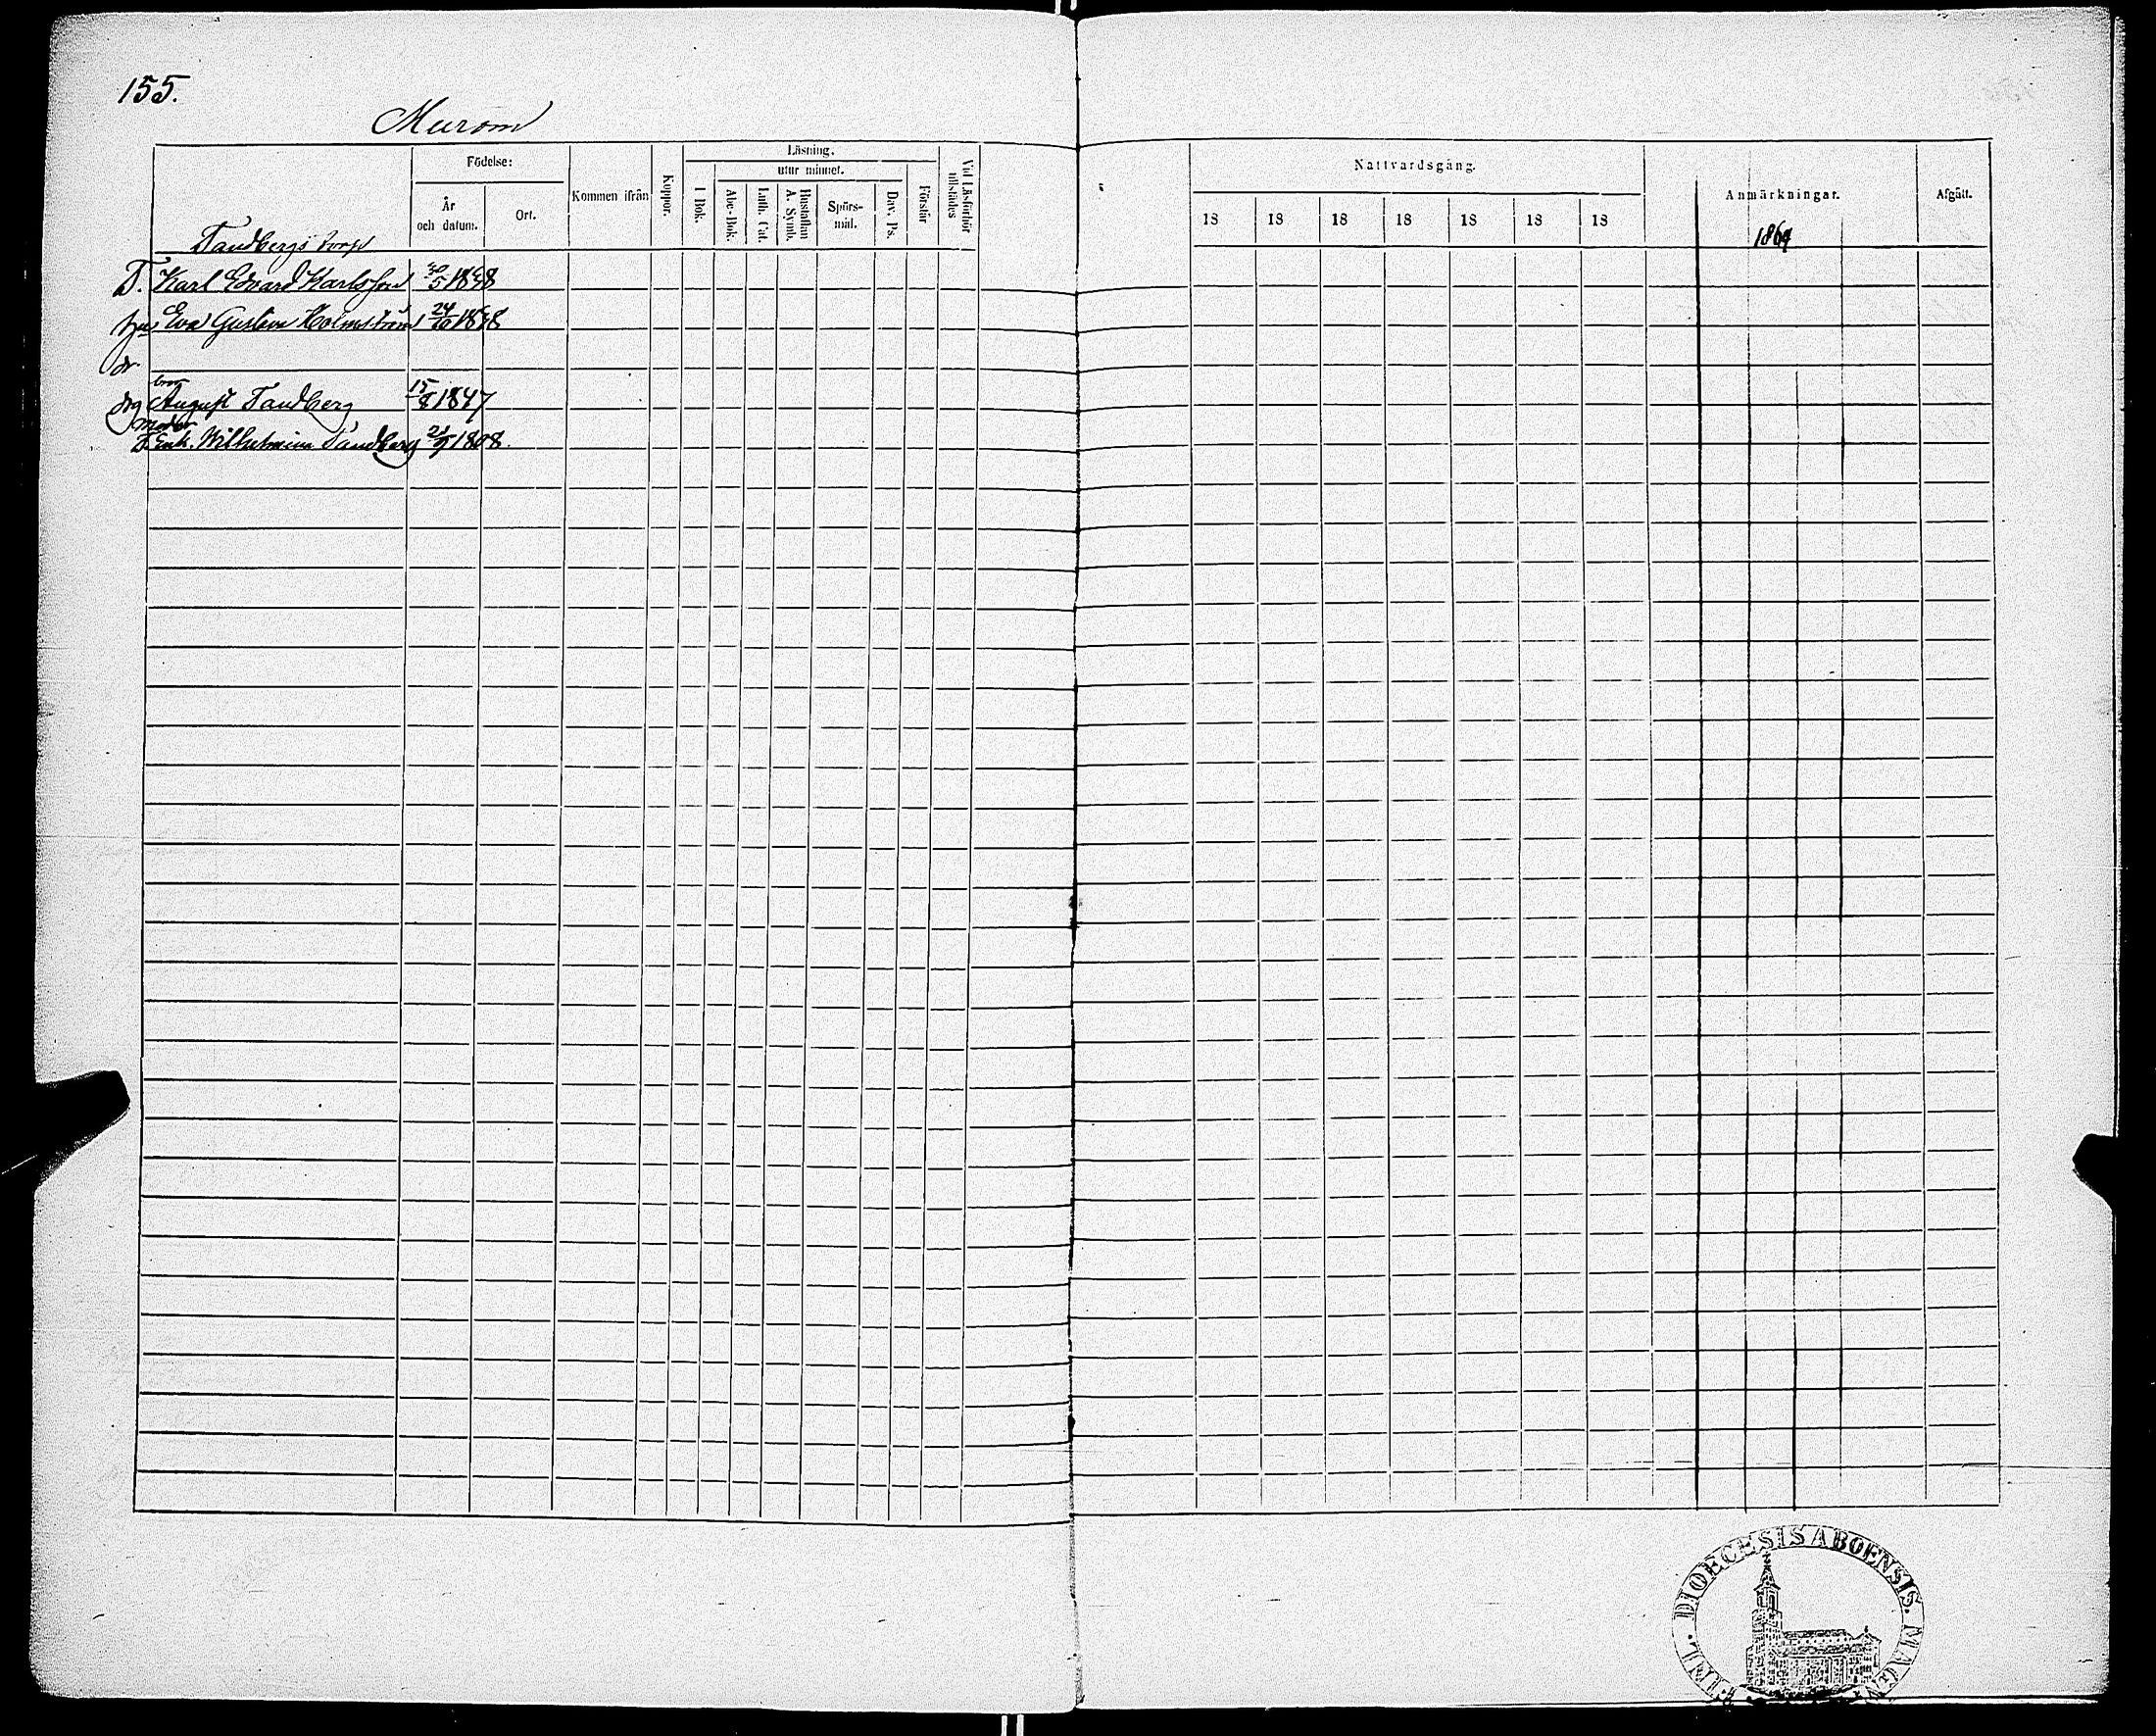 155.
Murom
Födelse:
År
och datum.
Ort.
Kommen ifrån
Koppor.
Läsning.
utur minnet.
I Bok.
Abc-Bok.
Luth. Cat.
Hustaflan
A. Symb.
Spörs-
mål.
Dav. Ps.
Förstår
Vid Läsförhör
tillstädes
Nattvardsgång.
18 18 18 18 18 18 18
Anmärkningar.
1869
Afgått.
Tandbergs torp
T. Karl Edvard Karlsson 30/5 1848
hu Eva Gustava Holmström 24/10 1848
dr
bror
drg August Tandberg 15/8 1847
moder
F. Enk. Wilhelmina Tandberg 1808.
FINL. DIOECESIS ABOENSIS. MAGN.